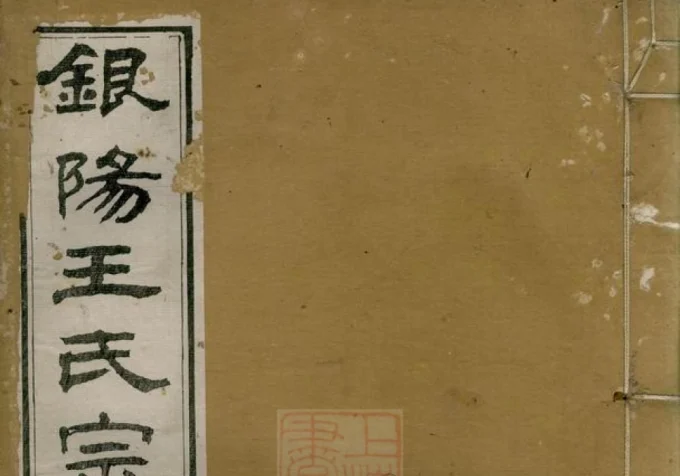 銀陽王氏宗